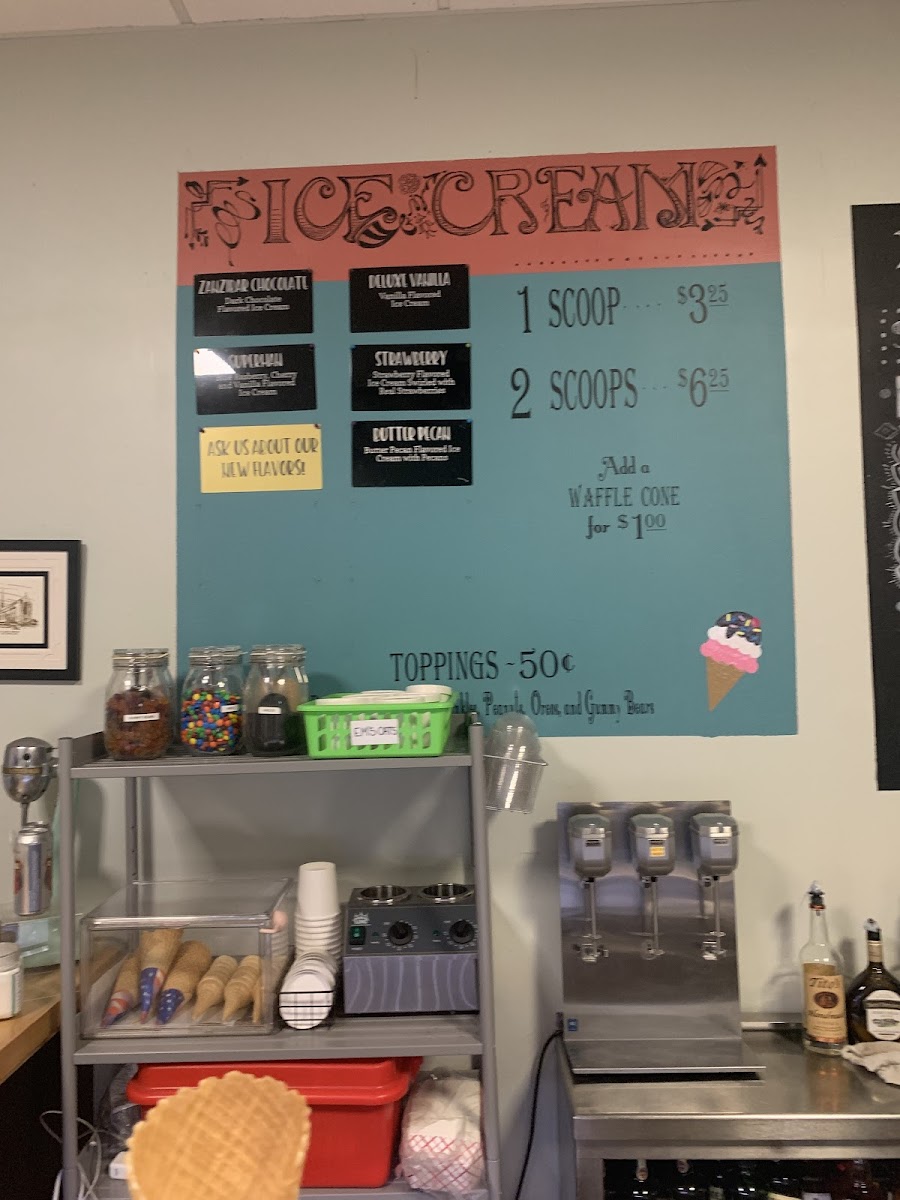 ICE CREAM
ZANZIBAR CHOCOLATE
Dark Chocolate
Flavored Ice Cream
DELUXE VANILLA
Vanilla Flavored
Ice Cream
SUPERMAN
Cherry
and Vanilla Flavored
Ice Cream
STRAWBERRY
Strawberry Flavored
Ice Cream Swirled with
Real Strawberries
ASK US ABOUT OUR
NEW FLAVORS!
BUTTER PECAN
Butter Pecan Flavored Ice
Cream with Pecans
1 SCOOP .... $3.25
2 SCOOPS ... $6.25
Add a
WAFFLE CONE
for $1.00
TOPPINGS ~ 50¢
Peanuts, Oreos, and Gummy Bears
Tito's
Handmade